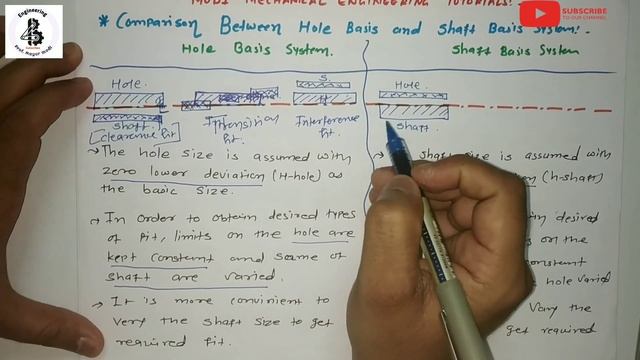 MODI MECHANICAL ENGINEERING TUTORIALS!
* Comparison Between Hole Basis and Shaft Basis System!
Hole Basis System.
Shaft Basis System
Engineering
Prof. Mayur Modi
SUBSCRIBE
TO OUR CHANNEL
Hole.
Shaft.
[clearance fit]
fit.
S.
H
Interference
fit.
Hole.
Shaft.
→ The hole size is assumed with
zero lower deviation (H-hole) as
the basic size.
→ In order to obtain desired types
of fit, limits on the hole are
kept constant and same of
shaft are varied.
→ It is more convinient to
very the shaft size to get
required fit.
shaft size is assumed with
(h-shaft)
desired
on the
constant
hole varied
Vary the
get required